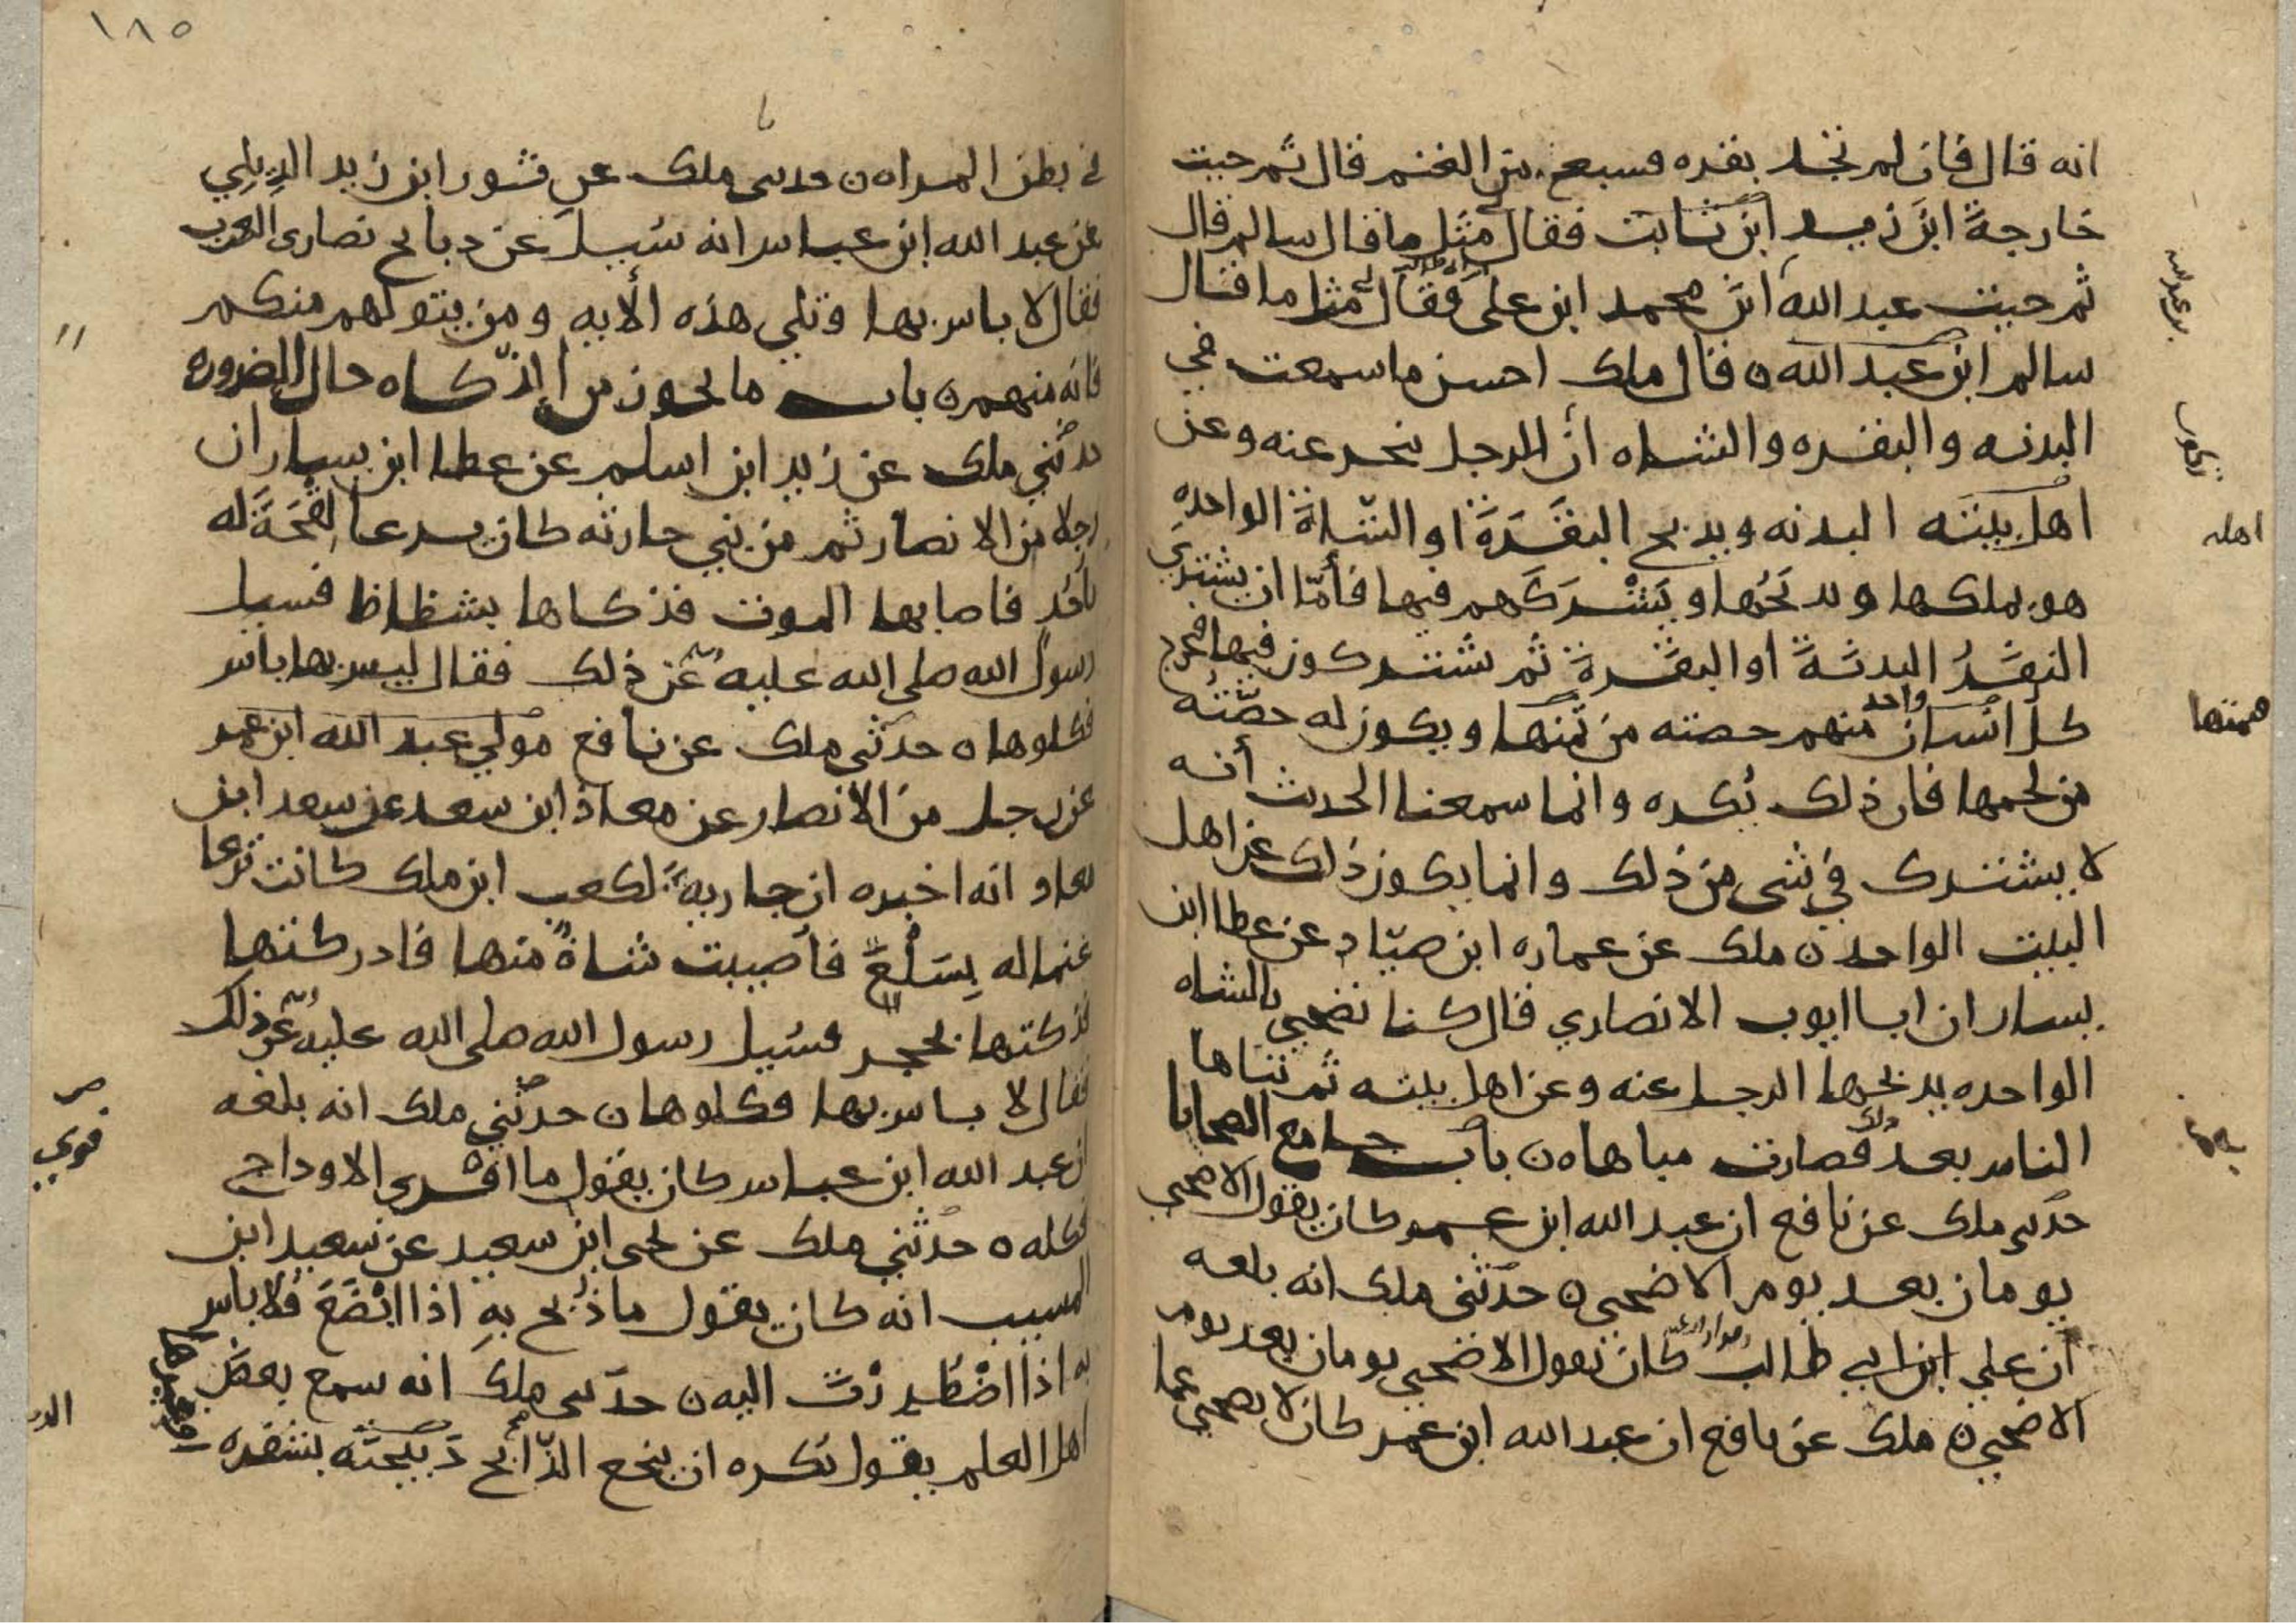 انه قال فان لم تجد بقره فسبع من الغنم قال ثم جيت
خارجة ابن زيد ابن ثابت فقال لي مثل ما قال سالم قال
ثم جيت عبد الله ابن محمد ابن علي فقال لي مثل ما قال
سالم ابن عبد الله ن قال ملك احسن ما سمعت في
البدنه والبقره والشاه أن الرجل ينحر عنه وعن
اهل بيته البدنه ويذبح البقرة او الشاة الواحده
هو يملكها ويذبحها ويشركهم فيها فأمّا ان يشتري
النفر البدنة أو البقرة ثم يشتركون فيها فيخرج
كل انسان واحد منهم حصته من ثمنها ويكون له حصّته
من لحمها فان ذلك يكره وانما سمعنا الحديث أنه
لا يشترك في شي من ذلك وانما يكون ذلك عن اهل
البيت الواحد ن ملك عن عماره ابن صيّاد عن عطا ابن
يسار ان ابا ايوب الانصاري قال كنا نضحي بالشاه
الواحده يذبحها الرجل عنه وعن اهل بيته ثم تباها
الناس بعد ذلك فصارت مباهاه ن باب جامع الضحايا
حدثني ملك عن نافع ان عبد الله ابن عمر كان يقول الاضحى
يومان بعد يوم الاضحى ن حدثني ملك انه بلغه
ان علي ابن ابي طالب كان يقول الاضحى يومان بعد يوم
الاضحى ن ملك عن نافع ان عبد الله ابن عمر كان لا يضحي عما
اهله
١٨٥
في بطن المراه ن حدثني ملك عن ثور ابن زيد الديلي
عن عبد الله ابن عباس انه سُيل عن ذبايح نصارى العرب
فقال لا باس بها وتلي هذه الأيه ومن يتولهم منكم
فانه منهم ن باب ما يجوز من الذكاه حال الضروره
حدثني ملك عن زيد ابن اسلم عن عطا ابن يسار ان
رجلا من الانصار ثم من بني حارثه كان يرعا لِقْحَةً له
بأُحُد فاصابها الموت فذكاها بشظاظ فسيل
رسول الله صلى الله عليه عن ذلك فقال ليس بها باس
فكلوها ن حدثني ملك عن نافع مولي عبد الله ابن عمر
عن رجل من الانصار عن معاذ ابن سعد عن سعد ابن
معاد انه اخبره ان جارية لكعب ابن ملك كانت ترعا
غنما له بِسَلْعٍ فأُصيبت شاة منها فادركتها
فذكتها بحجر فسُيل رسول الله صلى الله عليه عن ذلك
فقال لا باس بها فكلوها ن حدثني ملك انه بلغه
ان عبد الله ابن عباس كان يقول ما افرى الاوداج
فكله ن حدثني ملك عن يحيى ابن سعيد عن سعيد ابن
المسيب انه كان يقول ما ذُبح بهِ اذا ابْضَعَ فلا باس
به اذا اضْطُرِرْتَ اليه ن حدثني ملك انه سمع بعض
اهل العلم يقول يكره ان ينخع الذّابح ذَبيحته بشفره